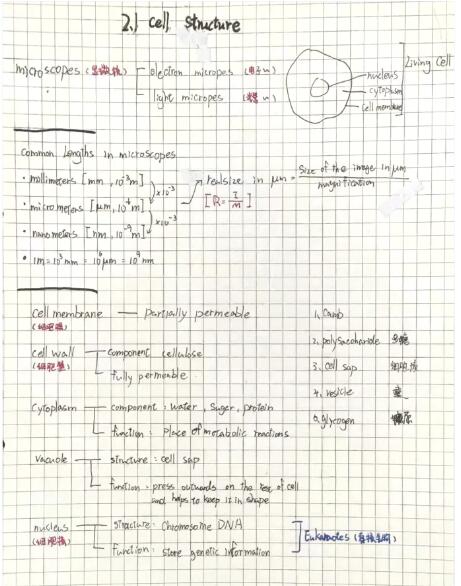 2.1 Cell Structure
microscopes (显微镜)
electron micropes (电子〃)
light micropes (光学〃)
nucleus
cytoplasm
cell membrane
Living Cell
Common lengths in microscopes
• millimeters [mm, 10⁻³m]
×10⁻³
• micrometers [μm, 10⁻⁶m]
×10⁻³
• nanometers [nm, 10⁻⁹m]
• 1m = 10³mm = 10⁶μm = 10⁹nm
real size in μm = size of the image in μm / magnification
[R = I/M]
cell membrane — partially permeable
(细胞膜)
cell wall
(细胞壁)
component cellulose
fully permeable
cytoplasm
component: water, suger, protein
function: Place of metabolic reactions
vacuole
structure: cell sap
function: press outwards on the rest of cell
and helps to keep it in shape
nucleus
(细胞核)
structure: Chromosome DNA
function: store genetic information
Eukaryotes (真核生物)
2. polysaccharide 多糖
3. cell sap 细胞液
4. vesicle
5. glycogen 糖原